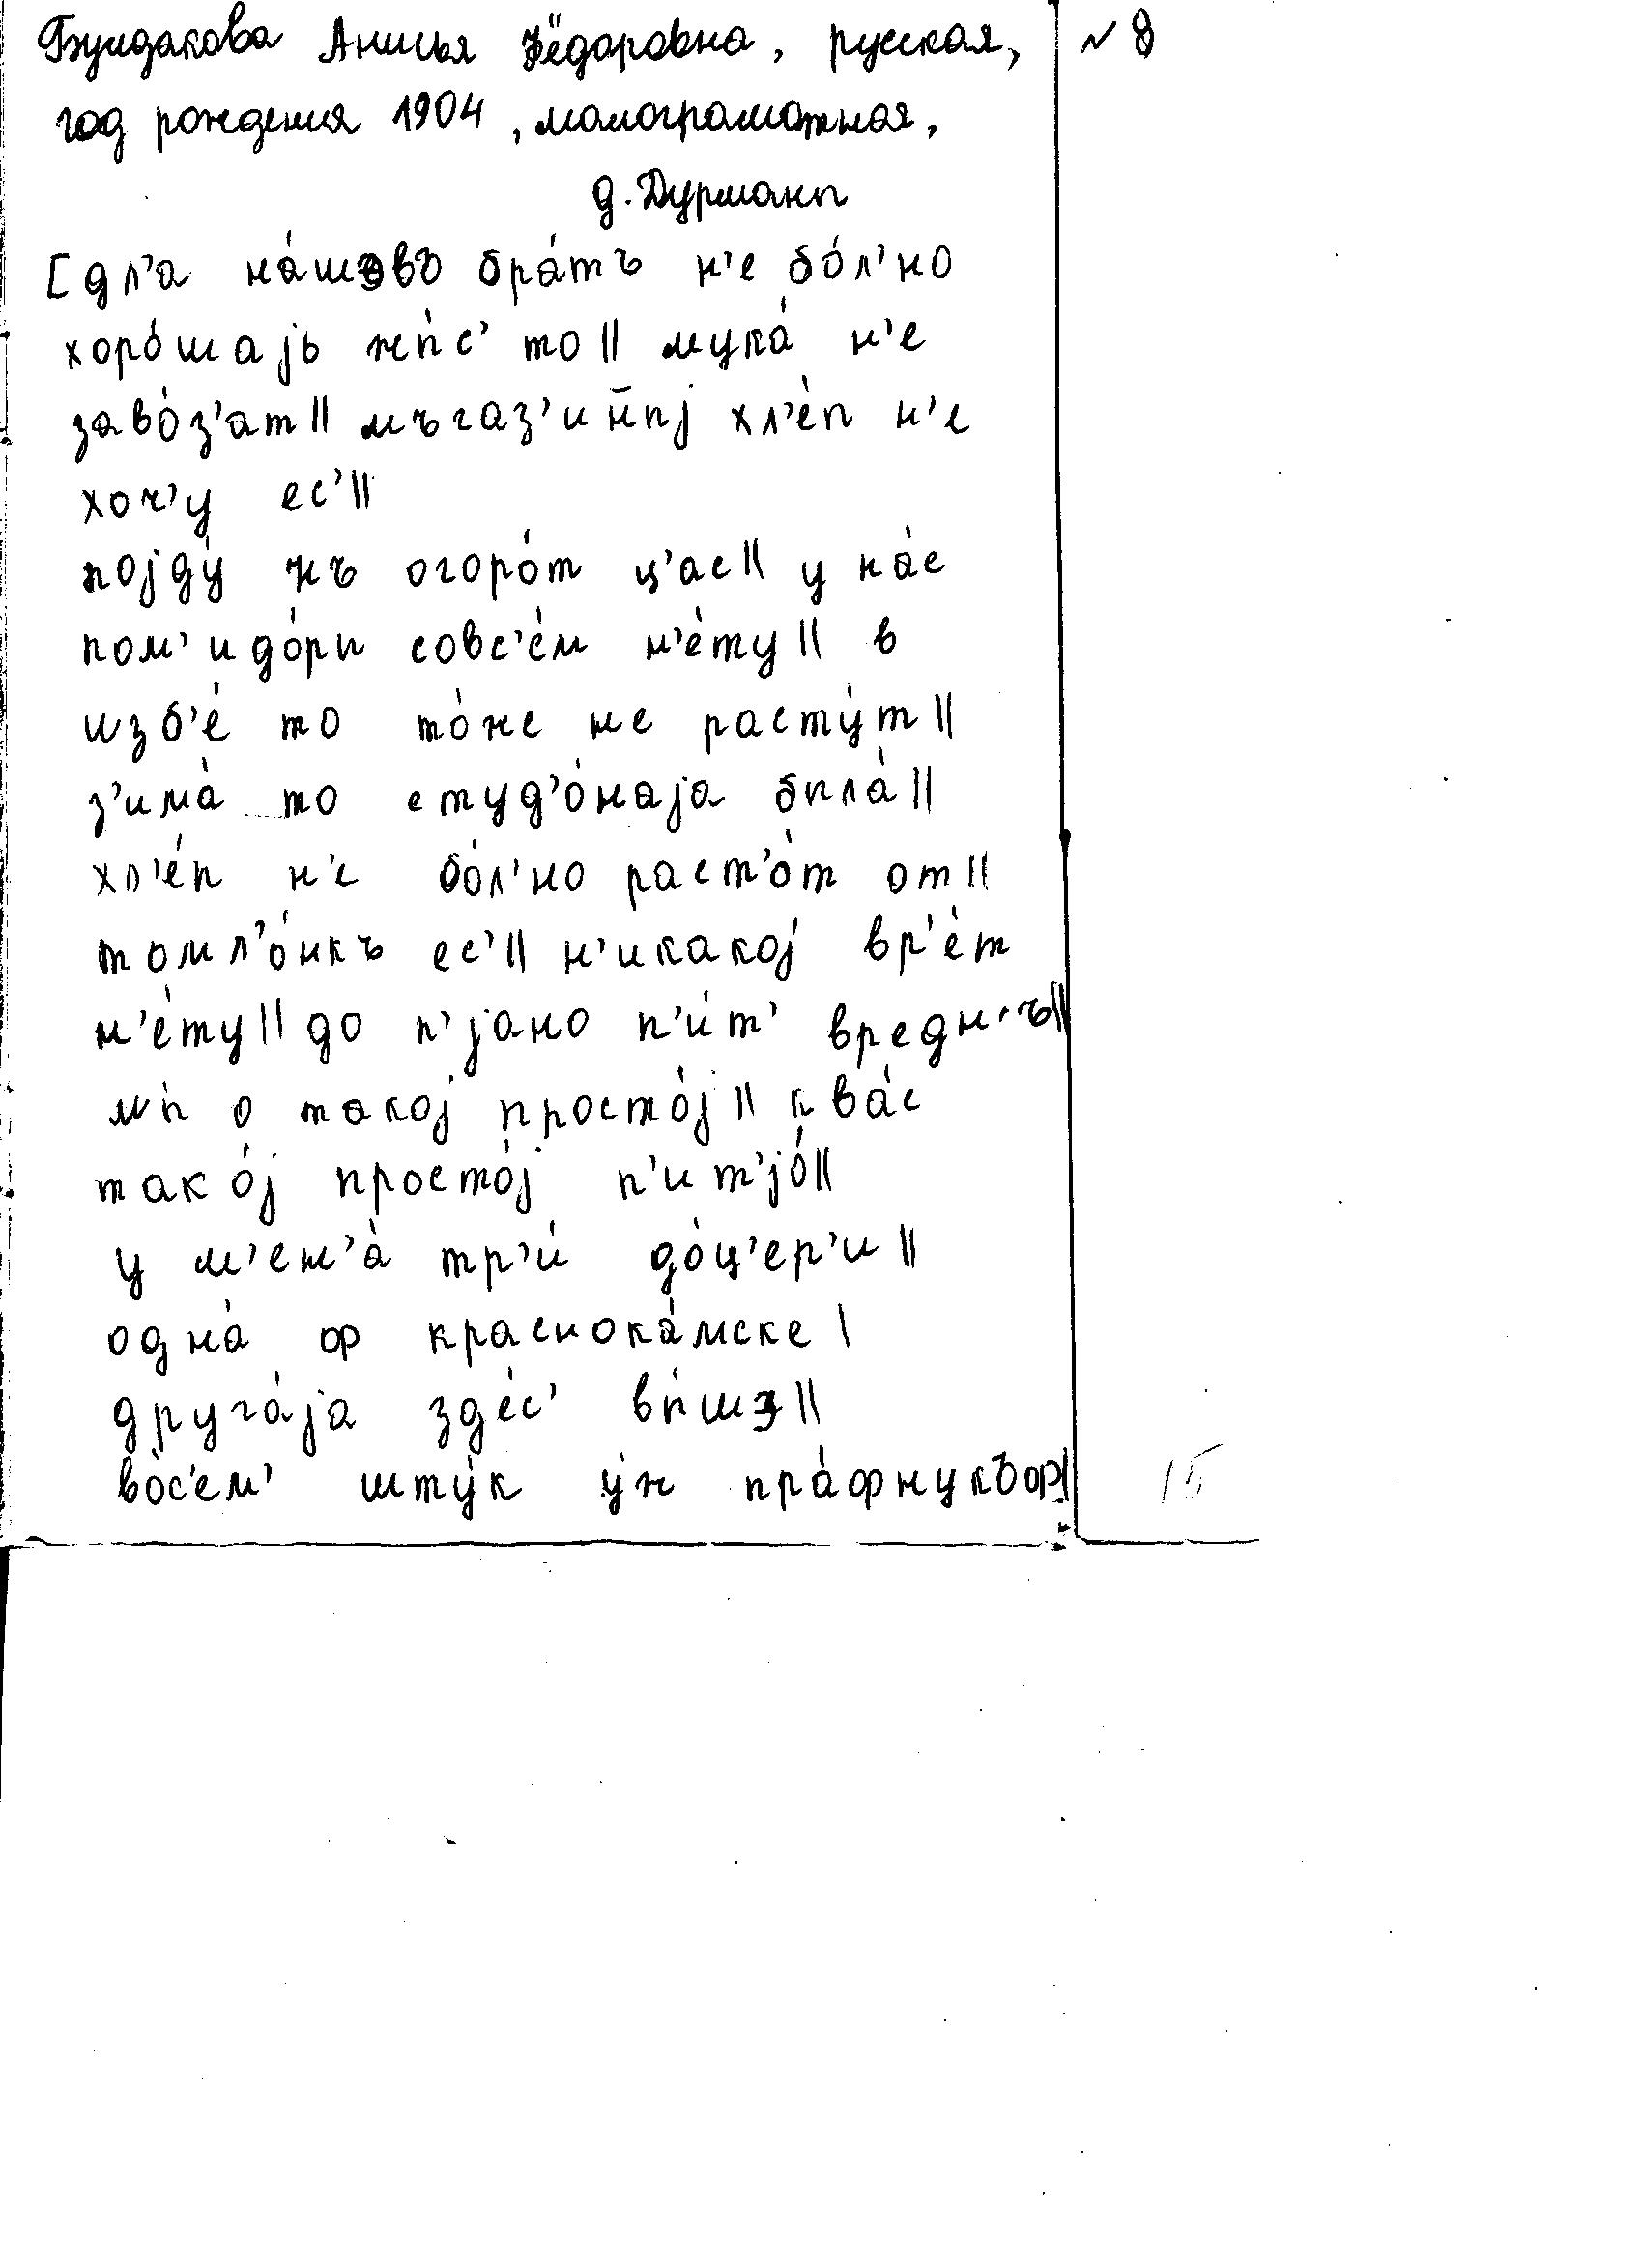 Булдакова Анисья Фёдоровна, русская, № 8
год рождения 1904, малограмотная,
д. Дурманы
[дл'а на́шэвъ бра́тъ н'е бо́л'но
хоро́шаjь жы́с' то || мука́ н'е
заво́з'ат || мъгаз'и н̄ыj хл'е́п н'е
хоч'у ес' ||
поjду́ нъ огоро́т ц'ас || у на́с
пом'идо́ры совс'е́м н'е́ту || в
изб'е́ то то́же не расту́т ||
з'има́ то студ'о́наjа была́ ||
хл'е́п н'е бо́л'но раст'о́т от ||
томл'о́нкъ ес' || н'икакоj вр'е́т
н'е́ту || до п'jано п'и́т' вредн.ъ ||
мы́ о такоj просто́j || к ва́с
тако́j просто́j п'ит'jо́ ||
у м'ен'а́ тр'и́ до́ц'ер'и ||
одна́ ф краснока́мске |
друга́jа зде́с' вы́шэ ||
во́с'ем' шту́к у́ж пра́фнукъоф || 15